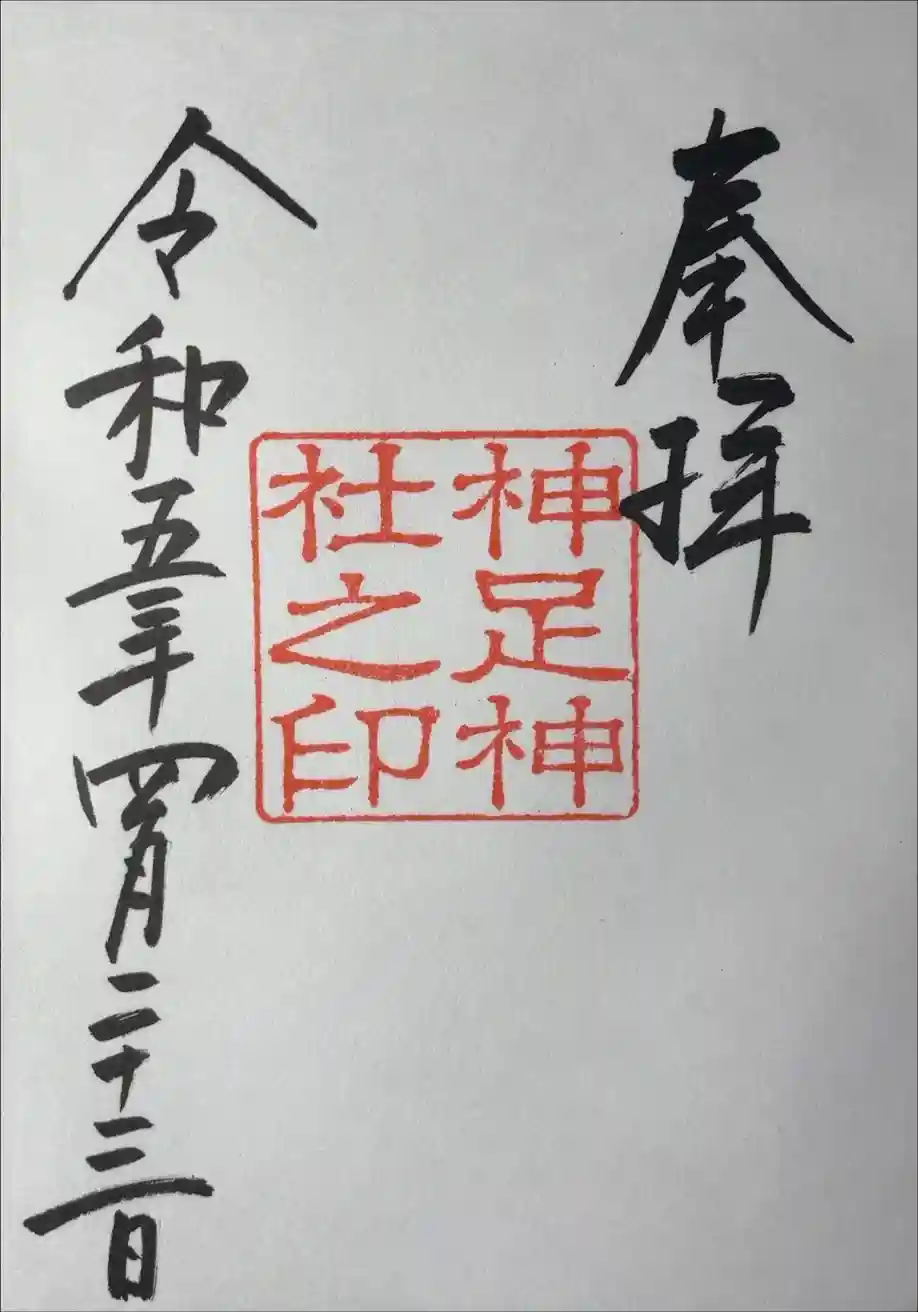 奉拝
神足神
社之印
令和五年四月二十三日